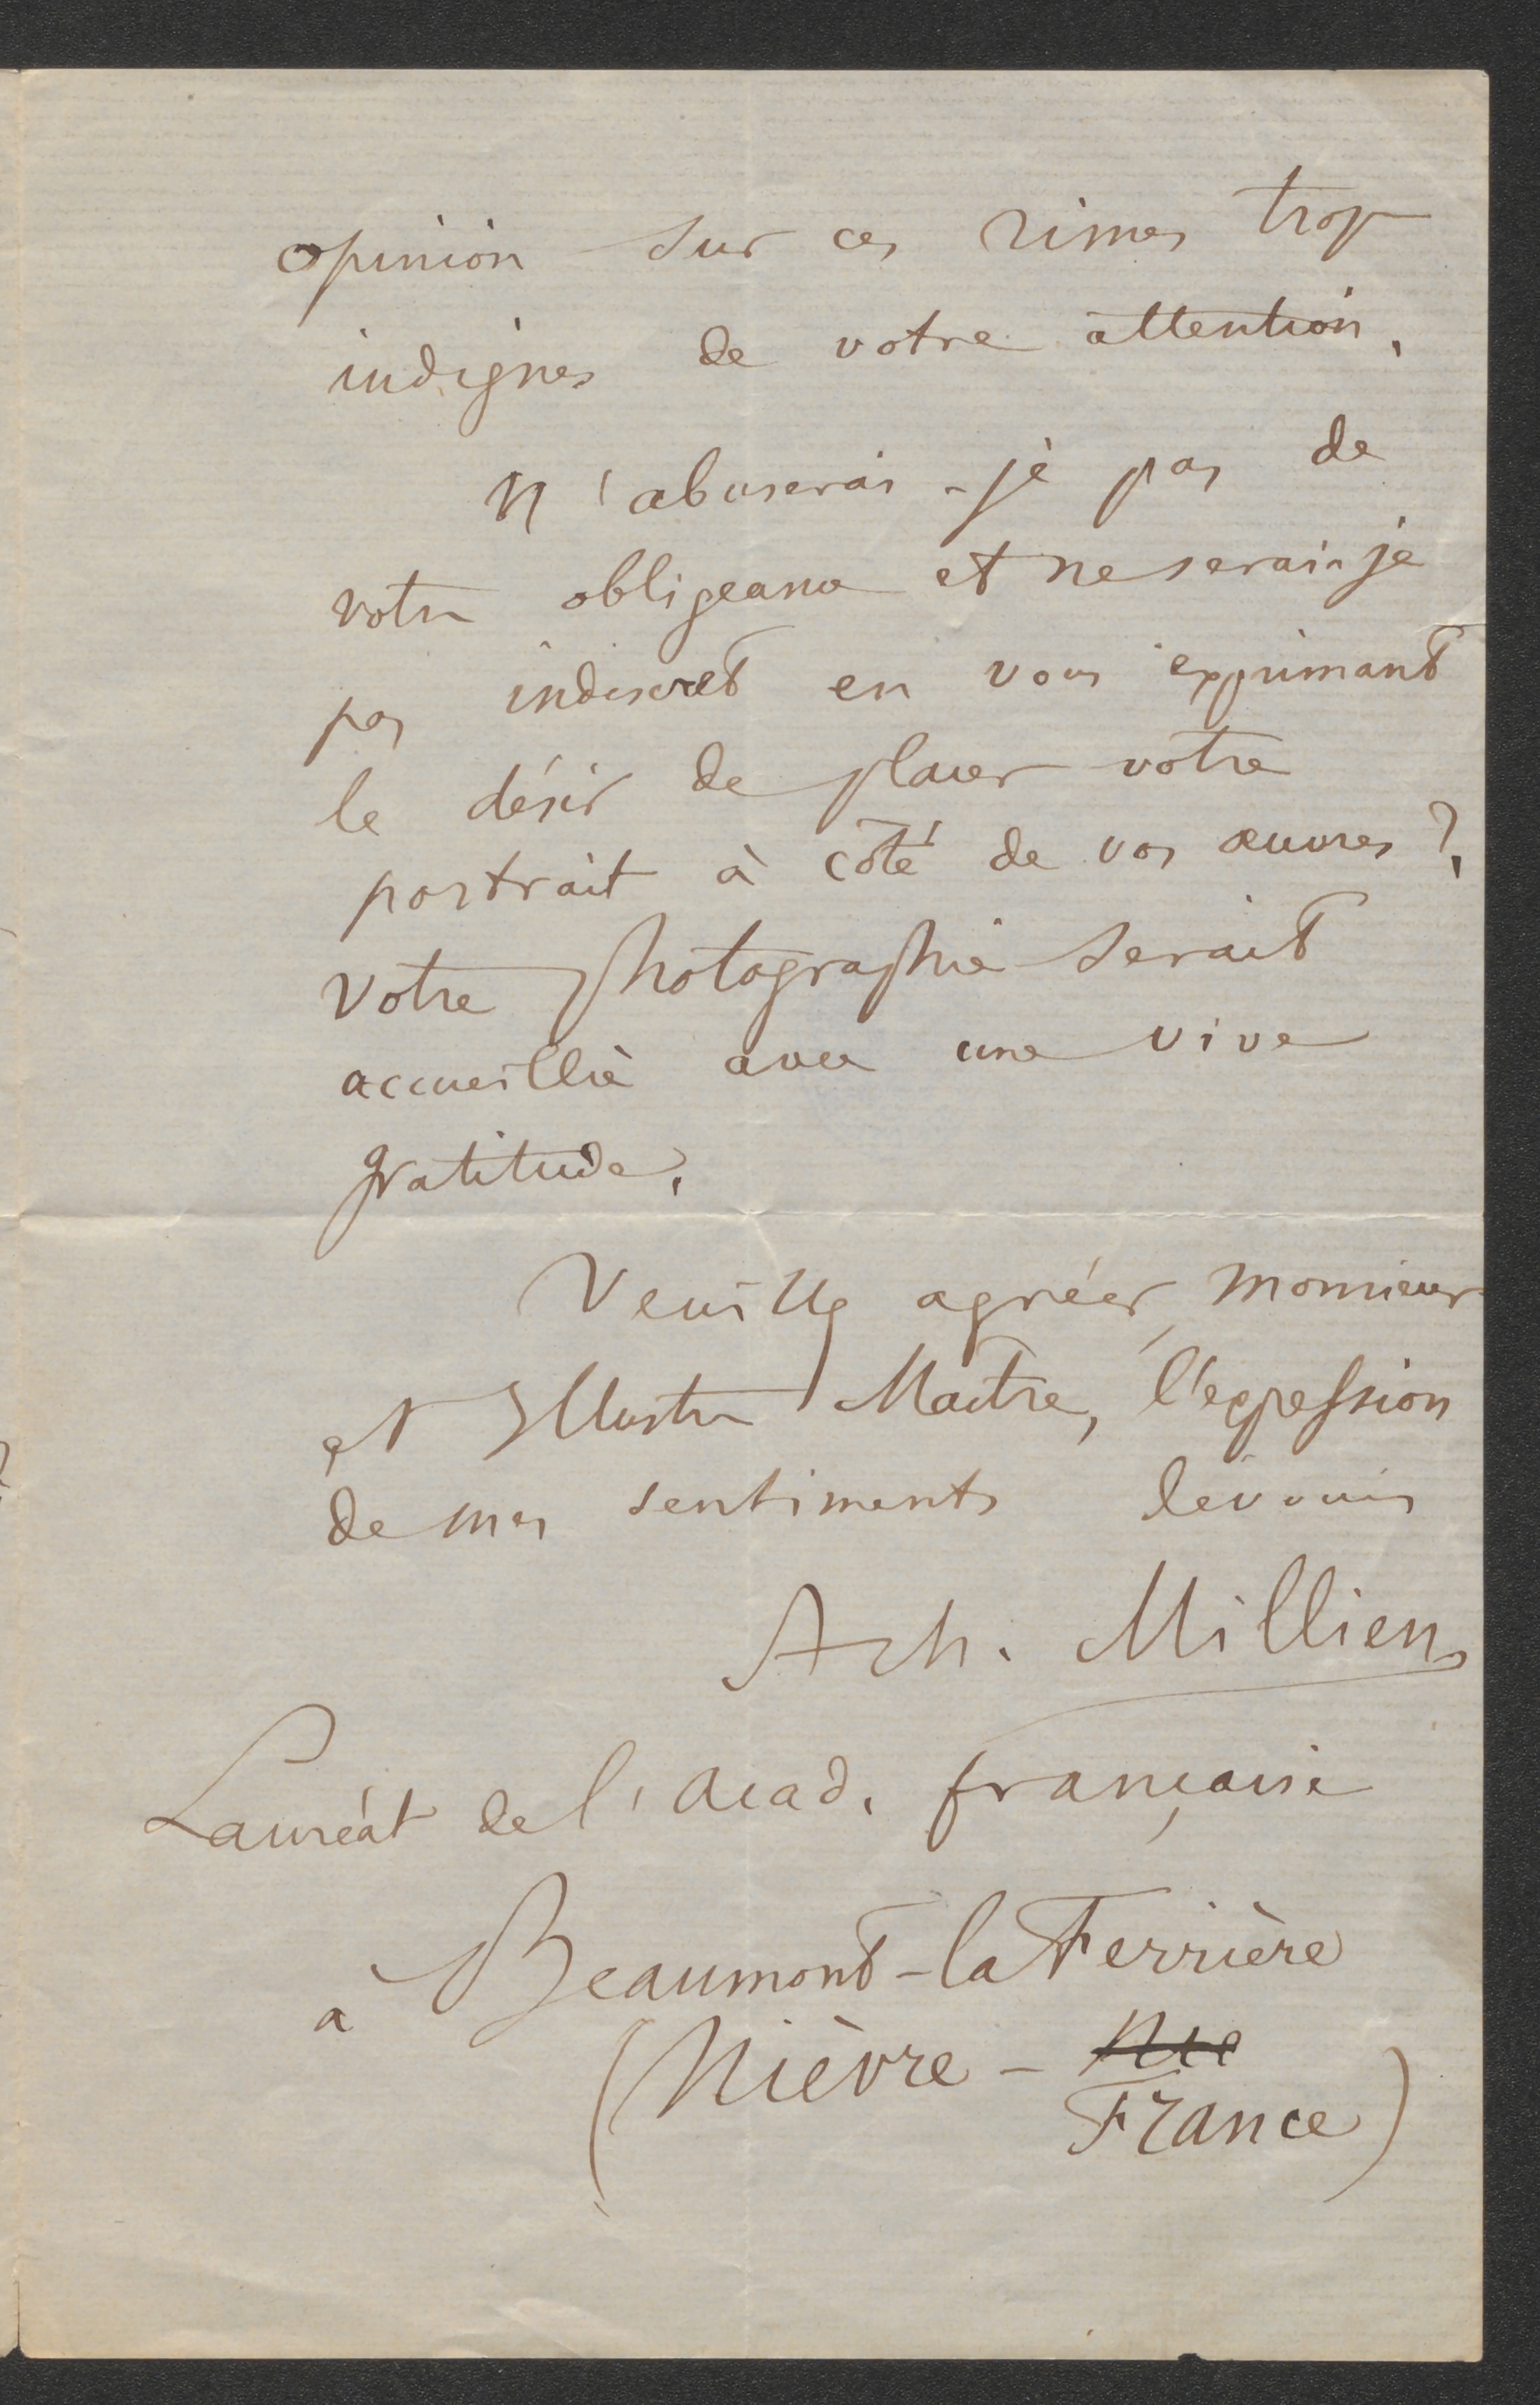 opinion sur ces rimes trop
indignes de votre attention.
N'abuserais-je pas de
votre obligeance et ne serais-je
pas indiscret en vous exprimant
le désir de placer votre
portrait à côté de vos œuvres ?
Votre photographie serait
accueillie avec une vive
gratitude.
Veuillez agréer, Monsieur
et Illustre Maître, l'expression
de mes sentiments dévoués
Ach. Millien
Lauréat de l'Acad. française
à Beaumont-la Ferrière
(Nièvre -
France)